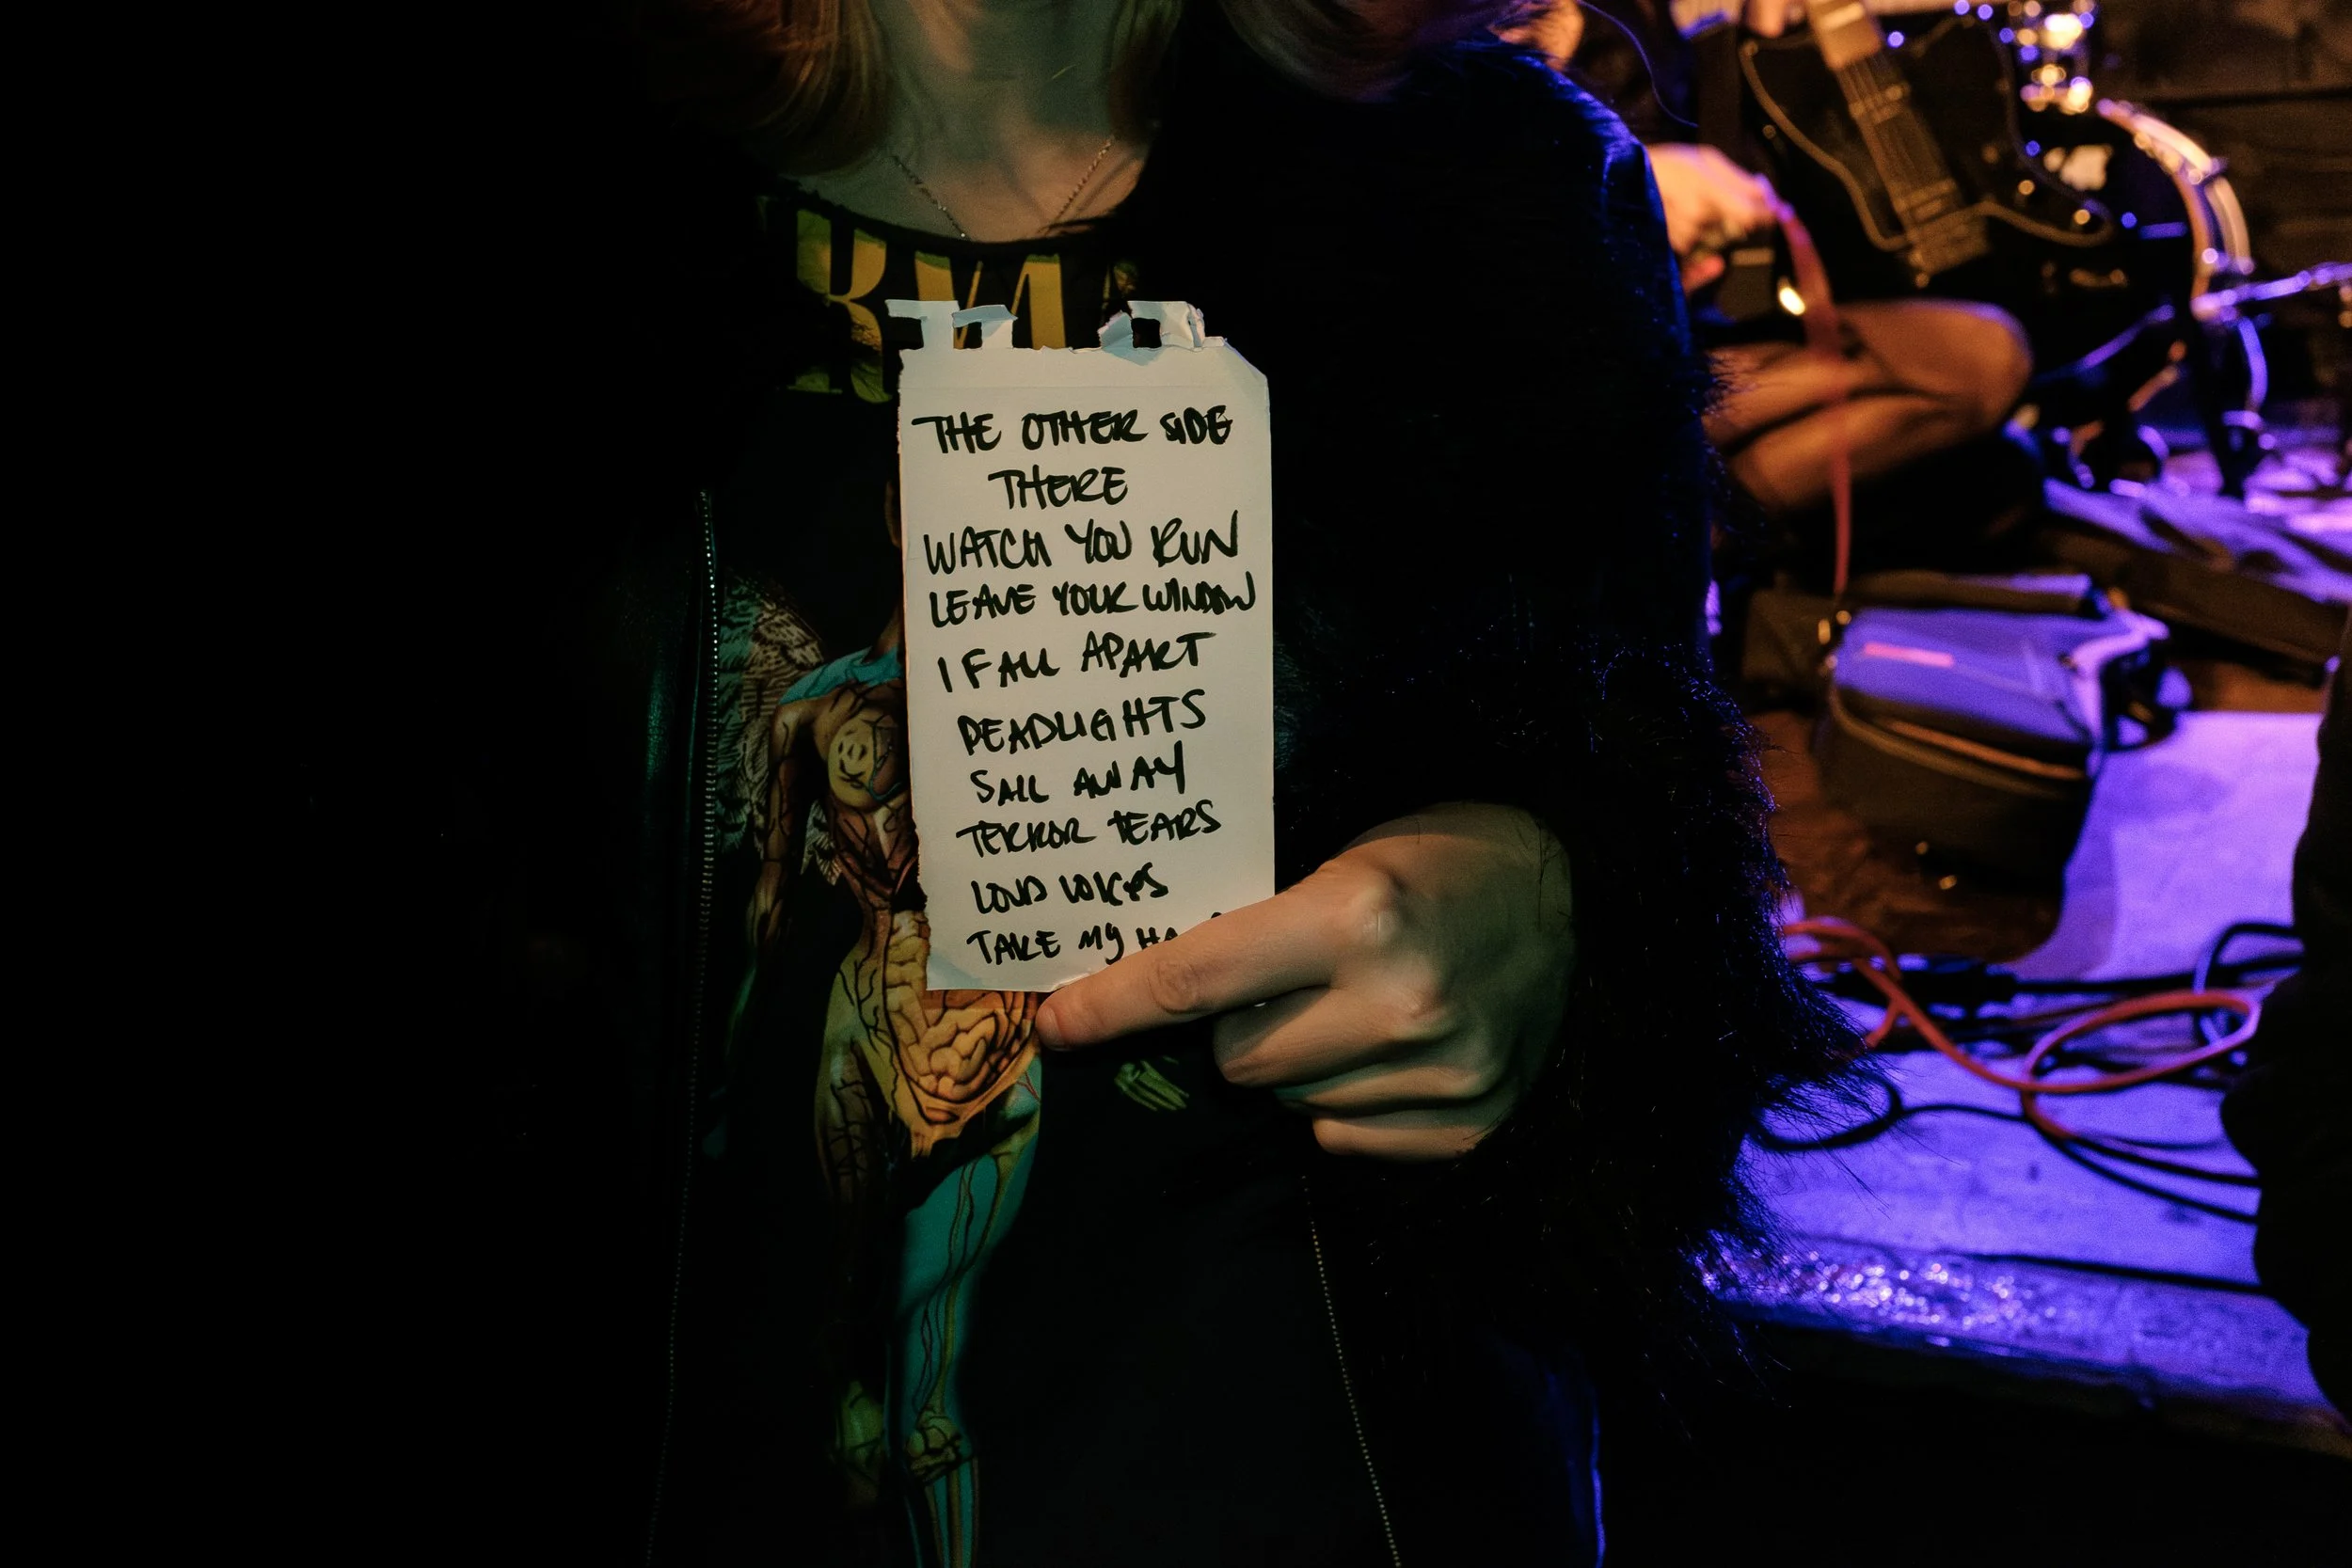 THE OTHER SIDE
THERE
WATCH YOU RUN
LEAVE YOUR WINDOW
I FALL APART
DEADLIGHTS
SAIL AWAY
TERROR TEARS
LOUD VOICES
TAKE MY